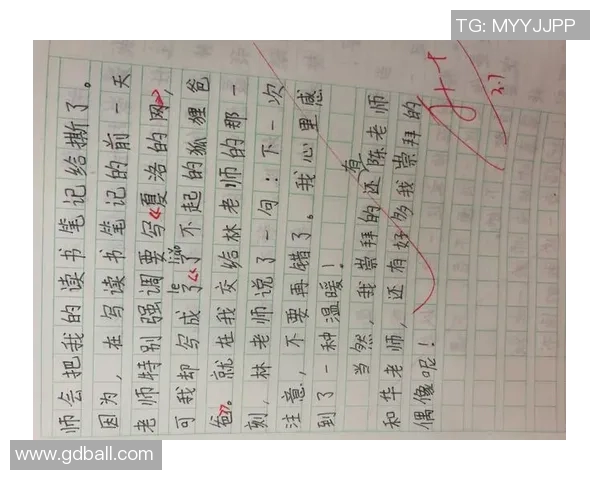 TG: MYYJJPP
师会把我的读书笔记给撕了。
因为，在写读书笔记的前一天
老师特别强调要写《夏洛的网》，
可我却写成了《了不起的狐狸爸
le
liǎo
爸》。就在我交给林老师的那一
刻，林老师说了一句：下一次
注意，不要再错了。我心里感
到了一种温暖！
当然，我崇拜的还有陈老师
和华老师，还有好多我崇拜的
偶像呢！
3.7
www.gdball.com